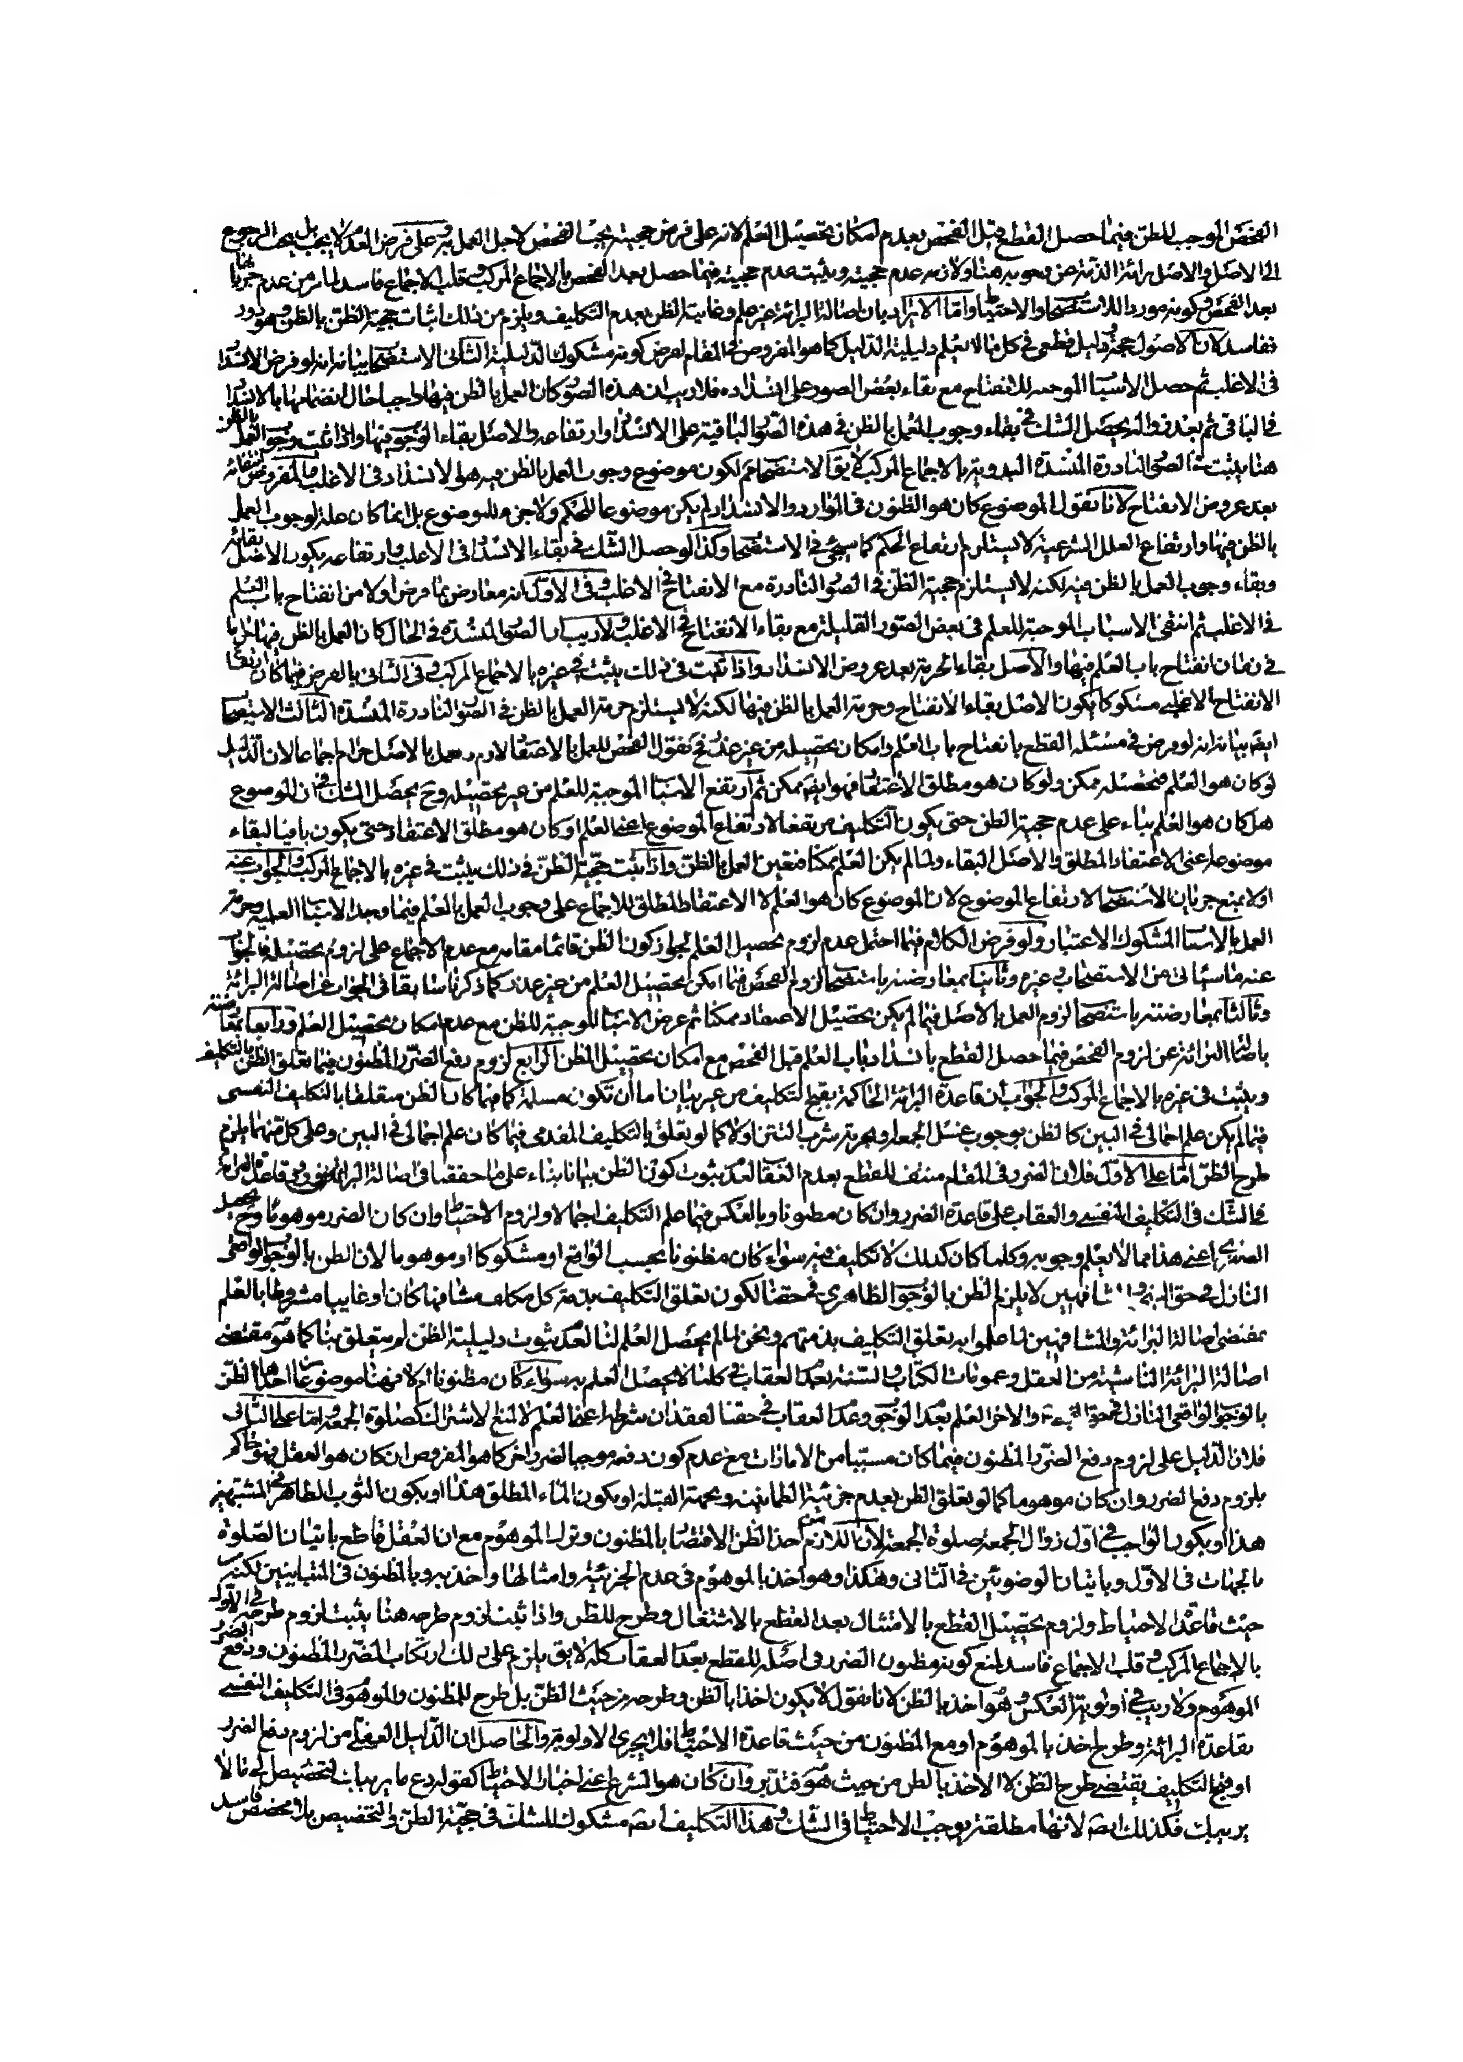 الفحص الموجب للظن فيما حصل القطع قبل الفحص بعدم امكان تحصيل العلم لانه على فرض حجيته يجب الفحص لاجل العمل به وعلى فرض العدم لا يجب بل يجب الرجوع
الى الاصل والاصل برائة الذمة عن وجوبه هنا ولازمه عدم حجيته ويثبت عدم حجيته فيما حصل بعد الفحص بالاجماع المركب وقلب الاجماع فاسد لما مر من عدم جريانها
بعد الفحص وكونه مورد الاستصحاب والاحتياط واما الايراد بان اصالة البرائة غير علم وغايته الظن بعدم التكليف ويلزم من ذلك اثبات حجية الظن بالظن وهو دور
ففاسد لان الاصول حجة ودليل قطعي في كل ما لا يعلم دليلية الدليل كما هو المفروض في المقام لفرض كونه مشكوك الدليلية الثاني الاستصحاب بيانه انه لو فرض الانسداد
في الاغلب ثم حصل الاسباب الموجبه للانفتاح مع بقاء بعض الصور على انسداده فلا ريب ان هذه الصور كان العمل بالظن فيها واجبا حال انضمامها بالانسداد
في الباقي ثم بعد زواله يحصل الشك في بقاء وجوب العمل بالظن في هذه الصور الباقية على الانسداد وارتفاعه والاصل بقاء الوجوب فيها واذا ثبت وجوب العمل بالظن
هنا يثبت في الصور النادرة المنسدة البدوية بالاجماع المركب لا يق الاستصحاب لكون موضوع وجوب العمل بالظن فيه هو الانسداد في الاغلب والمفروض انتفائه
بعد عروض الانفتاح لانا نقول الموضوع كان هو الظنون في الموارد والانسداد لم يكن موضوعا للحكم ولا جزء للموضوع بل انما كان علة لوجوب العمل
بالظن فيها وارتفاع العلل الشرعية لا يستلزم ارتفاع الحكم كما سيجئ في الاستصحاب وكذا لو حصل الشك في بقاء الانسداد في الاغلب وارتفاعه يكون الاصل بقائه
وبقاء وجوب العمل بالظن فيه لكنه لا يستلزم حجية الظن في الصور النادرة مع الانفتاح في الاغلب وفى الاول انه معارض بما فرض اولا من انفتاح باب العلم
في الاغلب ثم انتفى الاسباب الموجبة للعلم في بعض الصور القليلة مع بقاء الانفتاح في الاغلب ولا ريب ان الصور المنسدة في الحال كان العمل بالظن فيها حراما
في زمان انفتاح باب العلم فيها والاصل بقاء الحرمة بعد عروض الانسداد واذا ثبت في ذلك يثبت في غيره بالاجماع المركب وفى الثاني بالفرض فيما كان ارتفاع
الانفتاح الاغلبي مشكوكا يكون الاصل بقاء الانفتاح وحرمة العمل بالظن فيها لكنه لا يستلزم حرمة العمل بالظن في الصور النادرة المنسدة الثالث الاستصحاب
ايضا بيانه انه لو فرض في مسئلة القطع بانفتاح باب العلم وامكان تحصيله من غير عذر فح نقول الفحص للعمل بالاعتقاد لازم والعمل بالاصل حرام اجماعا لان الدليل
لو كان هو العلم فتحصيله ممكن ولو كان هو مطلق الاعتقاد فهو ايض ممكن ثم ارتفع الاسباب الموجبة للعلم من غير تحصيله وح يحصل الشك في ان الموضوع
هل كان هو العلم بناء على عدم حجية الظن حتى يكون التكليف مرتفعا لارتفاع الموضوع اعنى العلم او كان هو مطلق الاعتقاد حتى يكون باقيا لبقاء
موضوعه اعنى الاعتقاد المطلق والاصل البقاء ولما لم يكن العلم ممكنا فتعين العمل بالظن واذا ثبت حجية الظن في ذلك يثبت في غيره بالاجماع المركب والجواب عنه
اولا بمنع جريان الاستصحاب لارتفاع الموضوع لان الموضوع كان هو العلم لا الاعتقاد المطلق للاجماع على وجوب العمل بالعلم فيما وجد الاسباب العلمية وحرمة
العمل بالاسباب المشكوك الاعتبار ولو فرض الكلام فيما احتمل عدم لزوم تحصيل العلم لجواز كون الظن قائما مقامه مع عدم الاجماع على لزوم تحصيله فالجواب
عنه ما سيأتى من الاستصحاب وغيره وثانيا بمعارضته باستصحاب لزوم الفحص فيما امكن تحصيل العلم من غير عذر كما ذكرنا سابقا في الجواب عن اصالة البرائة
وثالثا بمعارضته باستصحاب لزوم العمل بالاصل فيما لم يكن تحصيل الاعتقاد ممكنا ثم عرض الاسباب الموجبة للظن مع عدم امكان تحصيل العلم ورابعا بمعارضته
باصالة البرائة عن لزوم الفحص فيما حصل القطع بانسداد باب العلم قبل الفحص مع امكان تحصيل الظن الرابع لزوم دفع الضرر المظنون فيما تعلق الظن بالتكليف
ويثبت في غيره بالاجماع المركب والجواب ان قاعدة البرائة الحاكمة بقبح التكليف من غير بيان اما ان تكون مسلمة كما فيما كان الظن متعلقا بالتكليف النفسى
فيما لم يكن علم اجمالى في البين كالظن بوجوب غسل الجمعة وبحرمة شرب التتن او لا كما لو تعلق بالتكليف المقدمى فيما كان علم اجمالى في البين وعلى كل منهما يلزم
طرح الظن اما على الاول فلان الضرر في المقام منتف للقطع بعدم العقاب لعدم ثبوت كون الظن بيانا بناء على ما حققنا في اصالة البرائة
في الشك في التكليف النفسي والعقاب على قاعدة الضرر وان كان مظنونا وبالعكس فيما علم التكليف اجمالا ولزوم الاحتياط وان كان الضرر موهوما وح يحصل
اعنى هذا مما لا يعلم وجوبه وكلما كان كذلك لا تكليف فيه سواء كان مظنونا بحسب الواقع او مشكوكا او موهوما لان الظن بالوجوب الواقعى
النازل في حق النبي والمشافهين لا يلزم الظن بالوجوب الظاهرى في حقنا لكون تعلق التكليف بذمة كل مكلف مشافها كان او غايبا مشروطا بالعلم
بمقتضى اصالة البرائة والمشافهين لما علموا به تعلق التكليف بذمتهم ونحن لما لم يحصل العلم لنا لعدم ثبوت دليلية الظن لم يتعلق بنا كما هو مقتضى
اصالة البرائة الناشئة من العقل وعمومات الكتاب والسنة بعدم العقاب في كلما لا يحصل العلم به سواء كان مظنونا ام لا فهنا موضوعان احدهما الظن
بالوجوب الواقعى النازل والاخر العلم بعدم الوجوب وعدم العقاب في حقنا لفقدان شرطه اعنى العلم لا لمنع الاشتراك كصلوة الجمعة واما على الثانى
فلان الدليل على لزوم دفع الضرر المظنون فيما كان مسببا من الامارات مع عدم كون دفعه موجبا لضرر اخر كما هو المفروض ان كان هو العقل فهو حاكم
بلزوم دفع الضرر وان كان موهوما كما لو تعلق الظن بعدم جزئية الطمانينه وبجهة القبلة او بكون الماء المطلق هذا او بكون الثوب الطاهر في المشتبهين
هذا او بكون الواجب في اول زوال الجمعة صلوة الجمعة لان اللازم من اخذ الظن الاقتصار بالمظنون وترك الموهوم مع ان العقل قاطع باتيان الصلوة
بالجهات في الاول وباتيان الوضوئين في الثانى وهكذا وهو اخذ بالموهوم في عدم الجزئية وامثالها واخذ به وبالمظنون في المتباينين لكنه من
حيث قاعدة الاحتياط ولزوم تحصيل القطع بالامتثال بعد القطع بالاشتغال وطرح للظن واذا ثبت لزوم طرحه هنا يثبت لزوم طرحه في الاول
بالاجماع المركب وقلب الاجماع فاسد لمنع كونه مظنون الضرر في اصله للقطع بعدم العقاب كله لا يق يلزم على ذلك ارتكاب الضرر المظنون ودفع الضرر
الموهوم ولا ريب في اولوية العكس وهو اخذ بالظن لانا نقول لا يكون اخذا بالظن وطرحه من حيث الظن بل طرح للمظنون والموهوم في التكليف النفسي
بقاعدة البرائة وطرح له واخذ بالموهوم او مع المظنون من حيث قاعدة الاحتياط فلا يجرى الاولوية والحاصل ان الدليل العقلى من لزوم دفع الضرر
او قبح التكليف يقتضى طرح الظن لا الاخذ بالظن من حيث هو فتدبر وان كان هو الشرع اعنى اخبار الاحتياط كقوله دع ما يريبك لتخصيص له الى ما لا
يريبك فكذلك ايضا لانها مطلقة يوجب الاحتياط في الشك وهذا التكليف ايضا مشكوك للشك في حجية الظن والتخصيص بلا مخصص فاسد